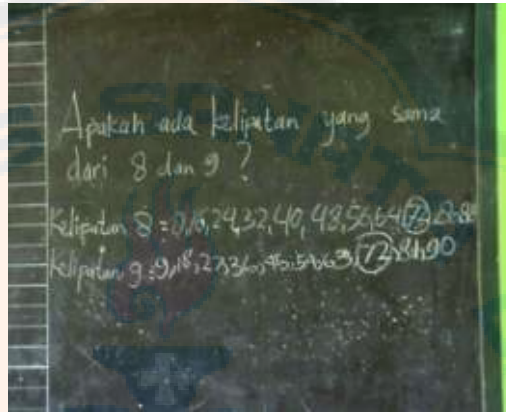 Apakah ada kelipatan yang sama
dari 8 dan 9 ?
Kelipatan 8 = 8,16,24,32,40,48,56,64,72,80,88
Kelipatan 9 = 9,18,27,36,45,54,63,72,81,90